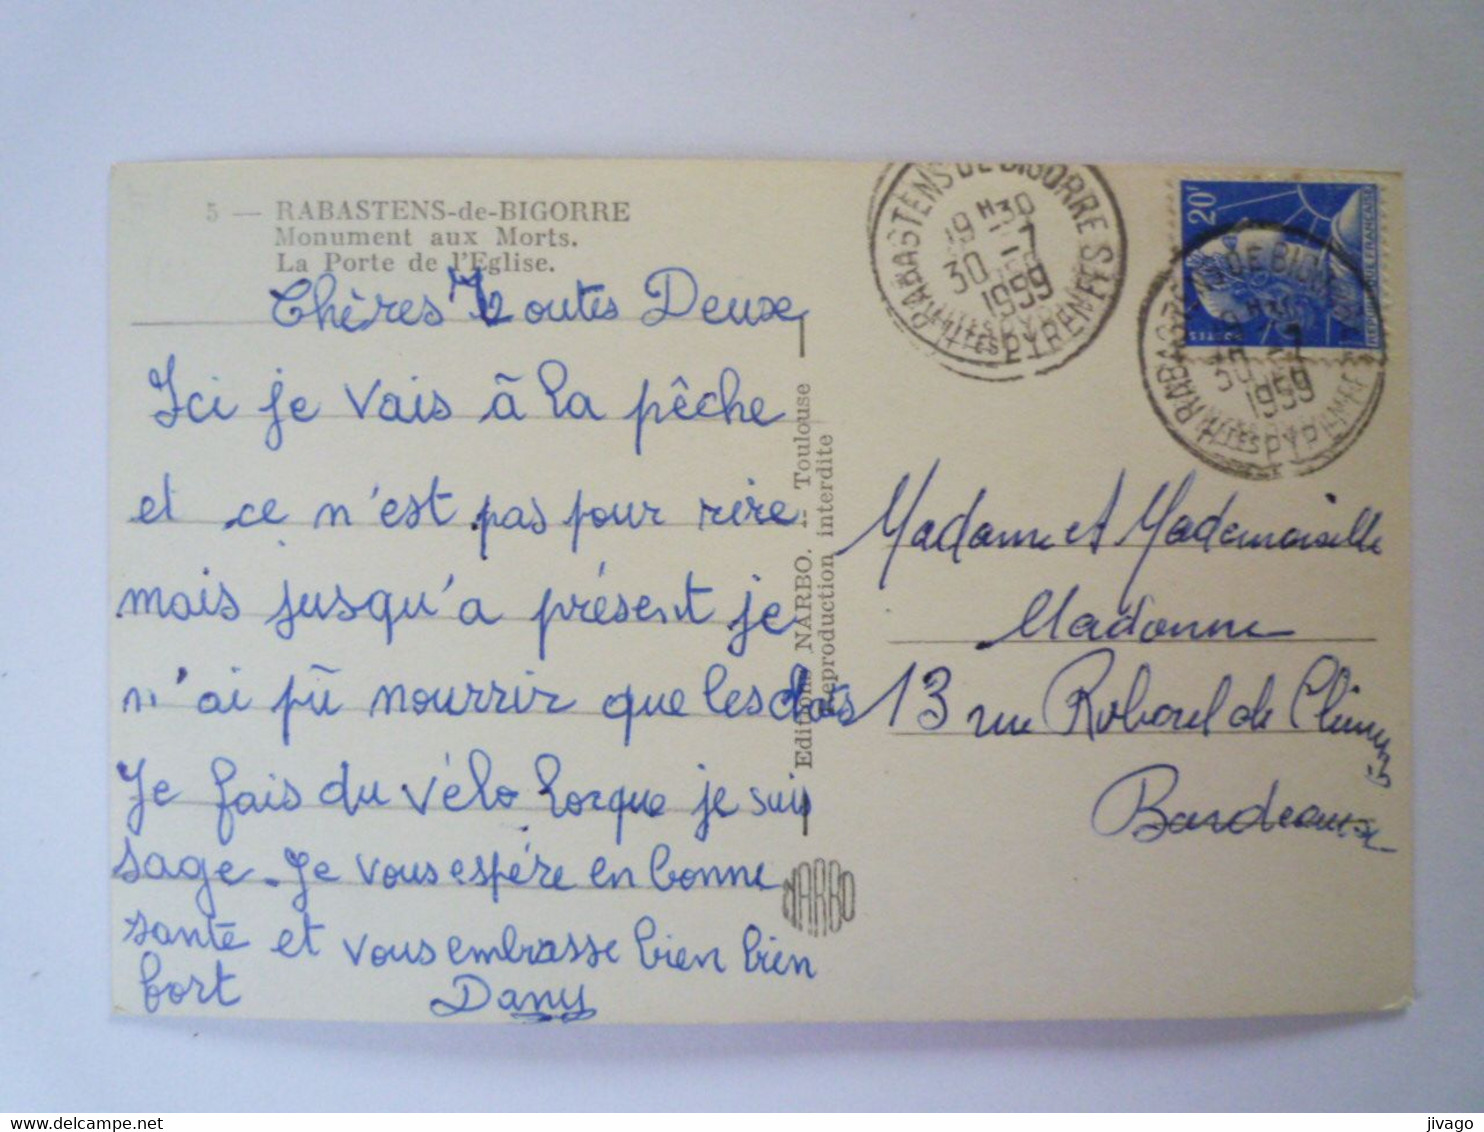 5 — RABASTENS-de-BIGORRE
Monument aux Morts.
La Porte de l'Eglise.
Chères Toutes Deux
Ici je vais à la pêche
et ce n'est pas pour rire
mais jusqu'à présent je
n'ai pû nourrir que les chats
Je fais du vélo lorque je suis
sage. Je vous espére en bonne
santé et vous embrasse bien bien
fort Dany
Editions NARBO. -- Toulouse
Reproduction interdite
NARBO
RABASTENS DE BIGORRE
19 H 30
30 - 7
1959
HTES PYRENEES
20f
REPUBLIQUE FRANÇAISE
RABASTENS DE BIGORRE
19 H 30
30 - 7
1959
HTES PYRENEES
Madame et Mademoiselle
Madonne
13 rue de
Bordeaux
jivago